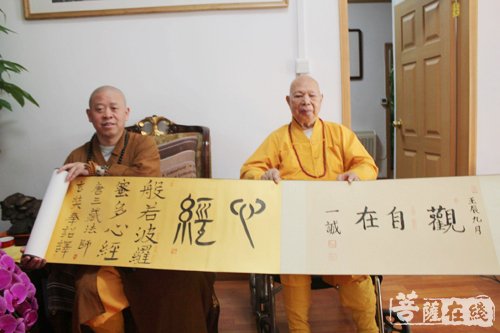 壬辰九月
觀自在
一誠
心經
般若波羅
蜜多心經
唐三藏法師
玄奘奉詔譯
菩薩在綫